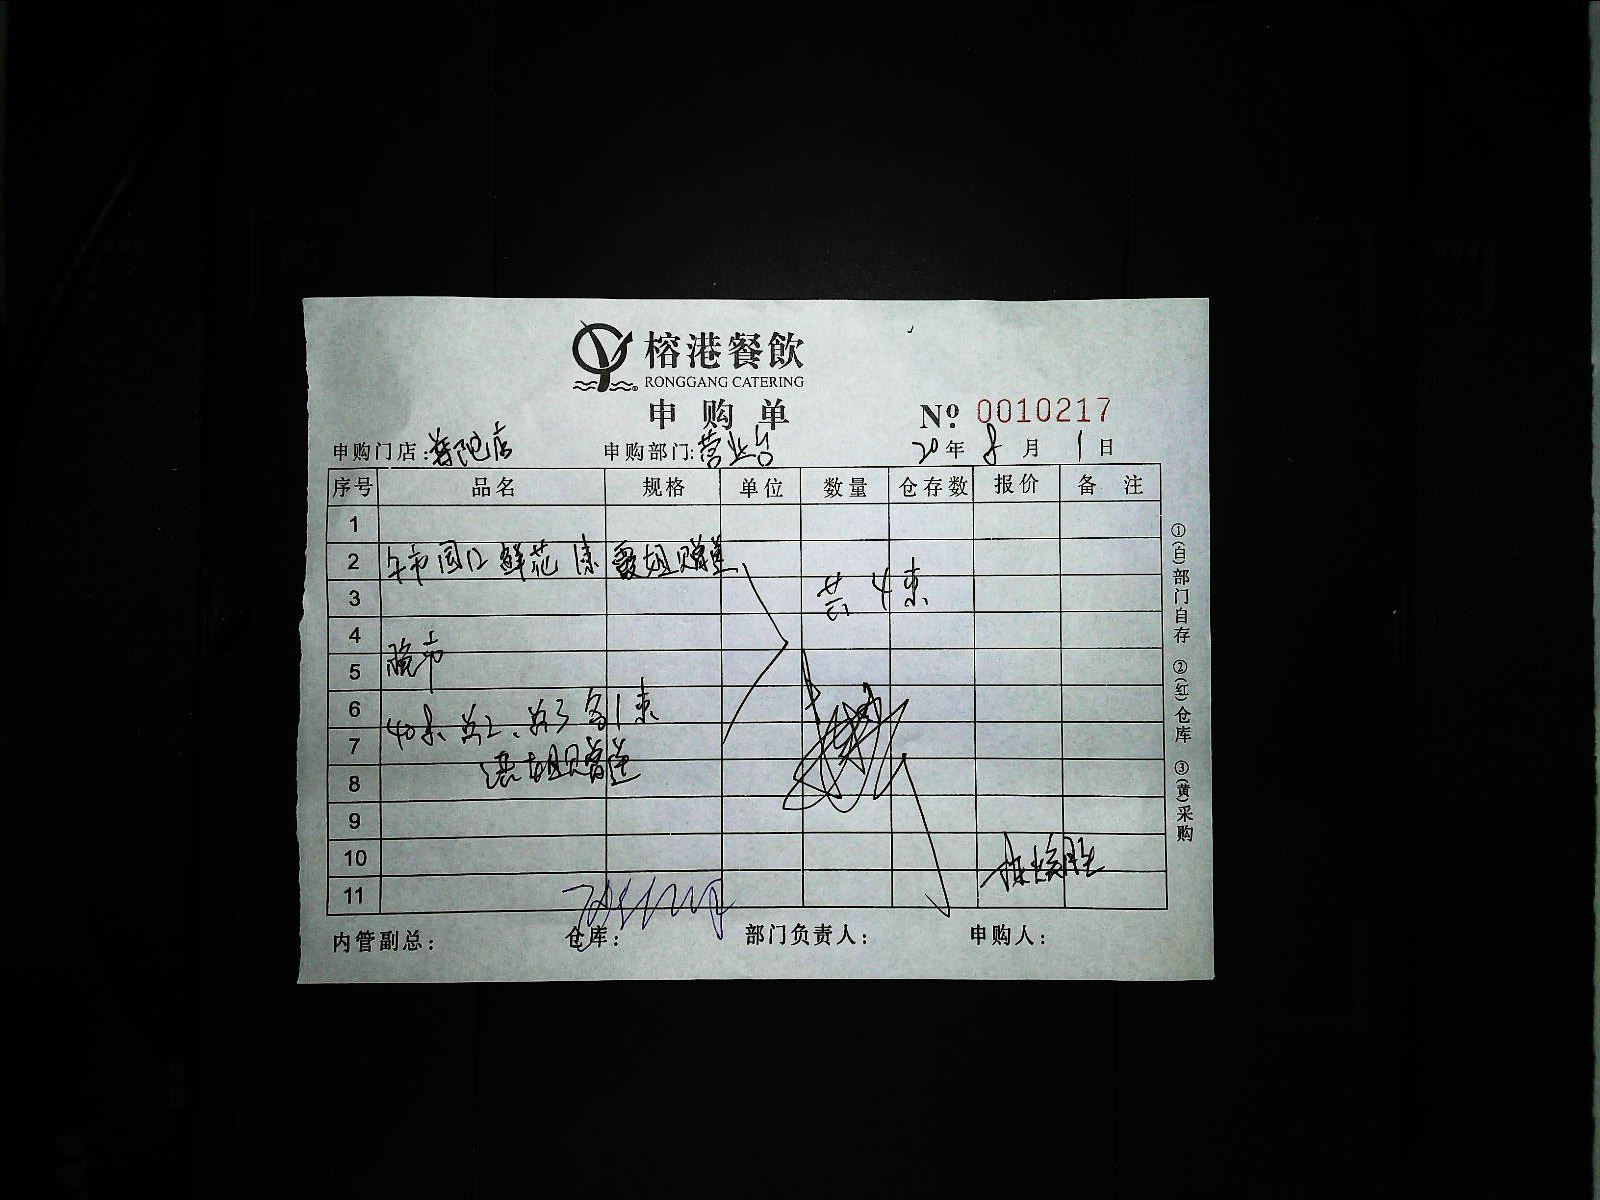 榕港餐飲
RONGGANG CATERING
申购单
№: 0010217
申购门店:普陀店 申购部门:营业台 20年8月1日
序号 品名 规格 单位 数量 仓存数 报价 备注
1
2 午市 鲜花1束 霞姐赠送
3 共4束
4
5 晚市
6
7 各1束
8 姐赠送
9
10
11
内管副总: 仓库: 部门负责人: 申购人:
①(白)部门自存 ②(红)仓库 ③(黄)采购